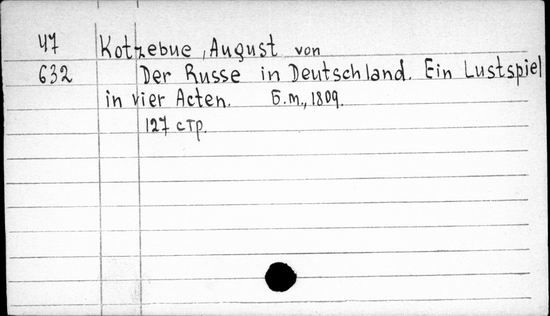 47 Kotzebue, August von
632 Der Russe in Deutschland. Ein Lustspiel
in vier Acten. Б.м., 1809.
127 стр.